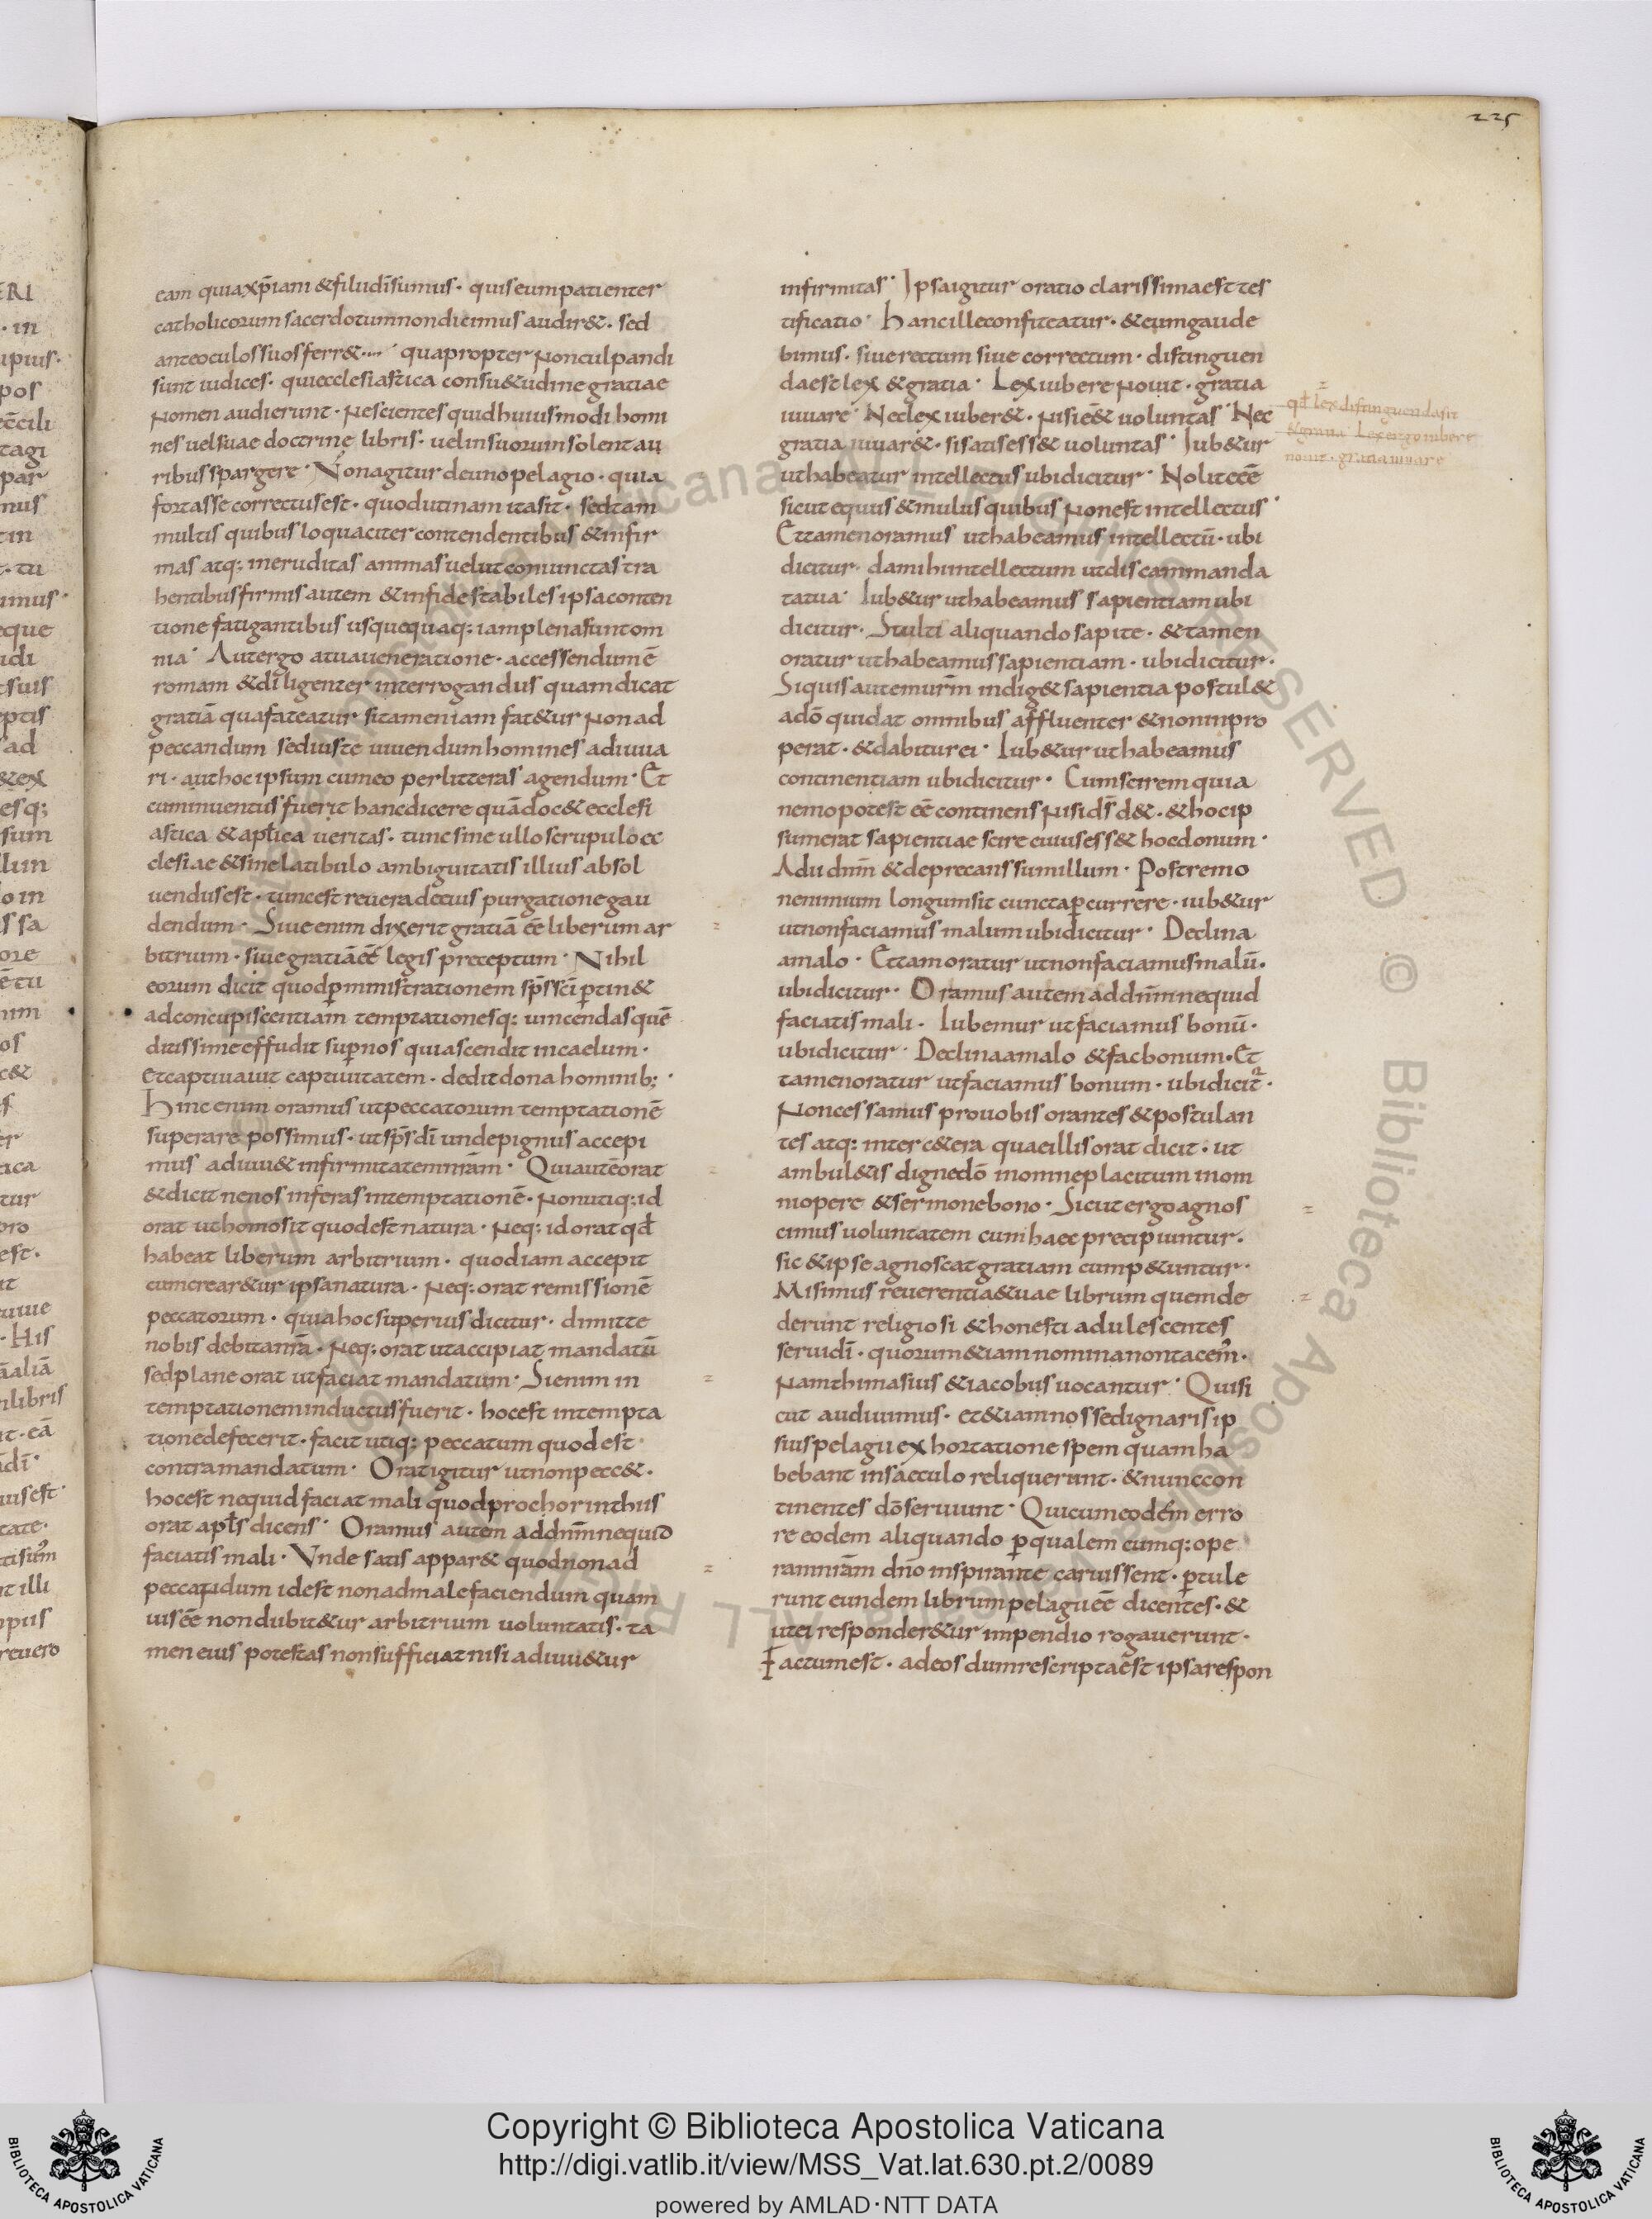 225
eam quiaxp̄iani &filiidīsumus · quiseumpatienter
catholicorum sacerdotumnondicimus audir& · sed
anteoculossuosferr& · quapropter Nonculpandi
sunt iudices · quiecclesiastica consu&udinegratiae
Nomen audierunt · Nescientes quidhuiusmodi homi
nes uelsuae doctrinę libris · uelinsuorumsolentau
ribusspargere · Nonagitur deunopelagio · quia
fortasse correctusest · quodutinam itasit · sedtam
multis quibus loquaciter contendentibus &infir
mas atq: ineruditas animas uelutconiunctas tra
hentibusfirmis autem &infidestabiles ipsaconten
tione fatigantibus usquequaq: iamplenasuntom
nia · Autergo atuaueneratione · accessendumē
romam &diligenter interrogandus quamdicat
gratiā quafateatur sitameniam fat&ur Nonad
peccandum sediuste uiuendumhomines adiuua
ri · authocipsum cumeo perlitteras agendum · Et
cuminuentusfuerit hancdicere quādoc&ecclesi
astica &apłica ueritas · tuncsine ulloscrupuloec
clesiae &sinelatibulo ambiguitatis illius absol
uendusest · tuncest reueradeeius purgationegau
dendum · Siueenim dixerit gratiā eē liberum ar
bitrium · siuegratiāeē legis preceptum · Nihil
eorum dicit quodpministrationem sp̄sscī ptin&
adconcupiscentiam temptationesq: uincendasquē
ditissimeeffudit supnos quiascendit incaelum ·
Etcaptiuauit captiuitatem · deditdonahominib; ·
Hinc enim oramus utpeccatorum temptationē
superare possimus · utsp̄sdī undepignusaccepi
mus adiuu& infirmitatemnrām · Quiautēorat
&dicit nenosinferasintemptationē · Nonutiq:id
orat uthomosit quodestnatura · Neq: idoratqd̄
habeat liberum arbitrium · quodiam accepit
cumcrear&ur ipsanatura · Neq:orat remissionē
peccatorum · quiahocsuperius dicitur · dimitte
nobis debitanrā · Neq: orat utaccipiat mandatū
sedplane orat utfaciat mandatum · Sienim in
temptationeminductusfuerit · hocest intempta
tionedefecerit · facit utiq: peccatum quodest
contramandatum · Oratigitur utnonpecc& ·
hocest nequidfaciat mali quodprochorinthiis
orat apłs dicens · Oramus autem addnm̄nequid
faciatismali · Vnde satis appar& quodnonad
peccandum idest nonadmalefaciendum quam
uiseē nondubit&ur arbitrium uoluntatis · ta
meneius potestas nonsufficiatnisi adiuu&ur
infirmitas · Ipsaigitur oratio clarissimaesttes
tificatio · Hancilleconfiteatur · &eumgaude
bimus · siuerectum siue correctum · distinguen
daestlex &gratia · Lexiubere Nouit · gratia
iuuare · Neclex iuber& · Nisieē& uoluntas · Nec
gratia iuuar& · sisatisess& uoluntas · Iub&ur
uthabeatur intellectus ubidicitur · Noliteeē
sicutequus &mulus quibus Nonestintellectus ·
Ettamenoramus uthabeamus intellectū · ubi
dicitur · damihiintellectum utdiscammanda
tatua · Iub&ur uthabeamus sapientiamubi
dicitur · Stulti aliquandosapite · &tamen
oratur uthabeamussapientiam · ubidicitur ·
Siquisautemurm̄ indig&sapientia postul&
adō quidat omnibus affluenter &noninpro
perat · &dabiturei · Iub&ur uthabeamus
continentiam ubidicitur · Cumscirem quia
nemopotest eē continens Nisids̄ d& · &hocip
sumerat sapientiae scire cuiusess& hocdonum ·
Adiidnm̄ &deprecanssumillum · Postremo
nenimium longumsit cunctapcurrere · iub&ur
utnonfaciamus malum ubidicitur · Declina
amalo · Ettamoratur utnonfaciamusmalū ·
ubidicitur · Oramus autem addnm̄nequid
faciatismali · Iubemur utfaciamus bonū ·
ubidicitur · Declinaamalo &facbonum · Et
tamenoratur utfaciamus bonum · ubidicit ·
Noncessamus prouobis orantes &postulan
tes atq: interc&era quaeillisorat dicit · ut
ambul&is dignedō inomneplacitum inom
niopere &sermonebono · Sicutergoagnos
cimus uoluntatem cumhaec precipiuntur ·
sic &ipse agnoscatgratiam cump&untur ·
Misimus reuerentiae&uae librum quemde
derunt religiosi &honesti adulescentes
seruidī · quorum&iamnominanontacem ·
Namthimasius &iacobusuocantur · Quisi
cut audiuimus · et&iamnossedignarisip
siuspelagii exhortatione spem quamha
bebant insaeculo reliquerunt · &nunccon
tinentes dōseruiunt · Quicumeodem erro
re eodem aliquando pqualem cumq:ope
ramnrām dn̄o inspirante caruissent · ptule
runt eundem librumpelagiieē dicentes · &
utei responder&ur impendio rogauerunt ·
Factumest · adeosdumrescriptaest ipsarespon
qd̄ lexdistinguendasit
&gratia Lexergoiubere
nouit · gratiaiuuare
Copyright © Biblioteca Apostolica Vaticana
http://digi.vatlib.it/view/MSS_Vat.lat.630.pt.2/0089
powered by AMLAD·NTT DATA
BIBLIOTECA APOSTOLICA VATICANA
BIBLIOTECA APOSTOLICA VATICANA